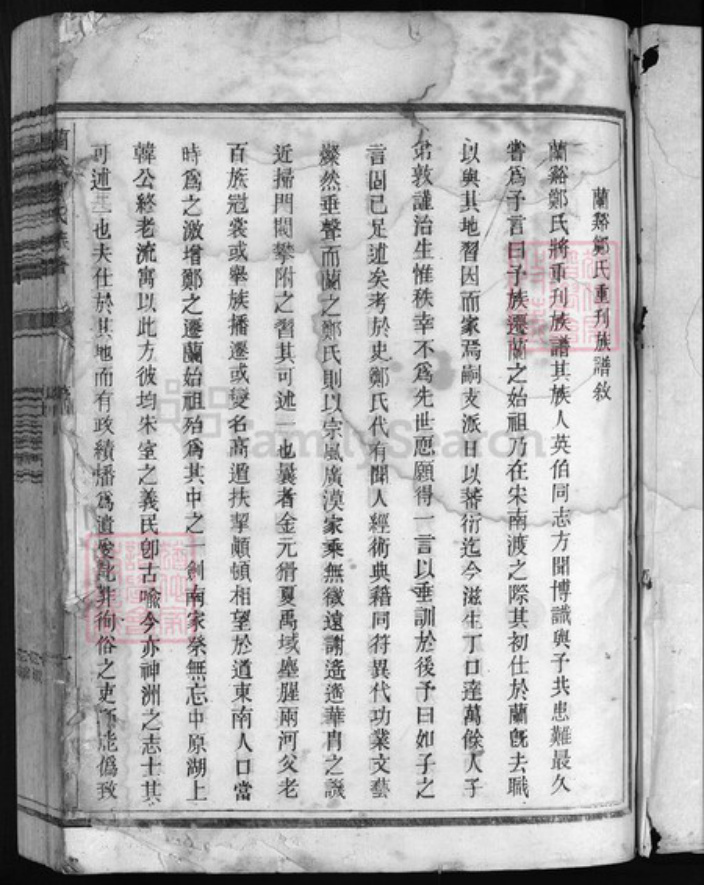 蘭谿鄭氏重刊族譜敘
蘭谿鄭氏將重刊族譜其族人英伯同志方聞博識與予共患難最久
嘗爲予言曰予族遷蘭之始祖乃在宋南渡之際其初仕於蘭旣去職
以與其地習因而家焉嗣支派日以蕃衍迄今滋生丁口達萬餘人子
弟敦謹治生惟秩幸不爲先世恧願得一言以垂訓於後予曰如子之
言固已足述矣考於史鄭氏代有聞人經術典籍同符異代功業文藝
燦然垂聲而蘭之鄭氏則以宗風廣漠家乘無徵遠謝遙遙華胄之譏
近掃門閥攀附之習其可述一也曩者金元猾夏禹域塵腥兩河父老
百族冠裳或舉族播遷或變名高遁扶挈顛頓相望於道東南人口當
時爲之激增鄭之遷蘭始祖殆爲其中之一劍南家祭無忘中原湖上
韓公終老流寓以此方彼均宋室之義民卽古喻今亦神洲之志士其
可述二也夫仕於其地而有政績播爲遺愛此非徇俗之吏所能僞致
FamilySearch